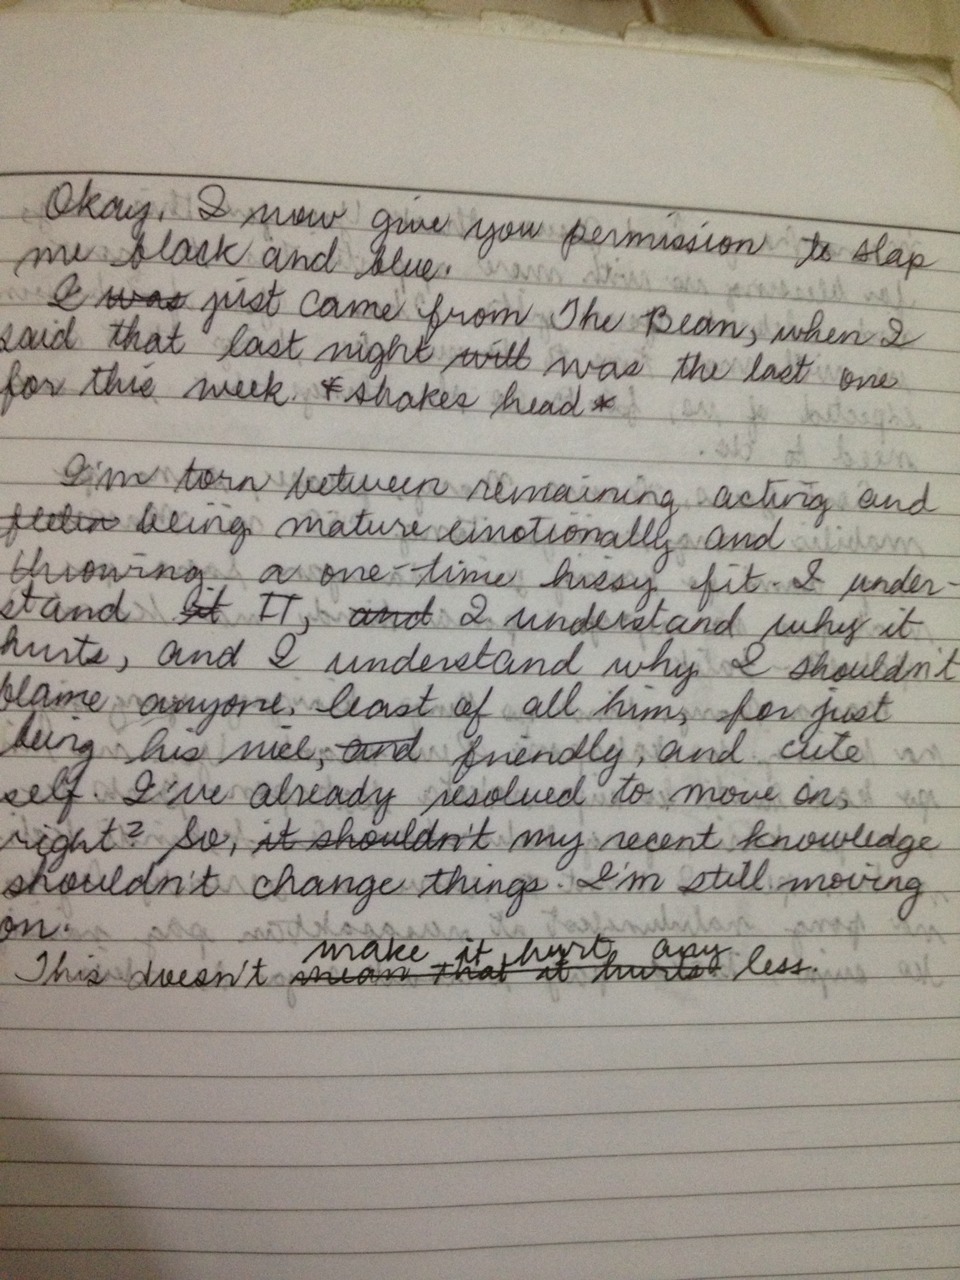 Okay. I now give you permission to slap
me black and blue.
I was just came from The Bean, when I
said that last night will was the last one
for this week. *shakes head*
I'm torn between remaining acting and
feelin being mature emotionally and
throwing a one-time hissy fit. I under-
stand it IT, and I understand why it
hurts, and I understand why I shouldn't
blame anyone, least of all him, for just
being his nice, and friendly, and cute
self. I've already resolved to move on,
right? So, it shouldn't my recent knowledge
shouldn't change things. I'm still moving
on.
make it hurt any
This doesn't mean that it hurts less.